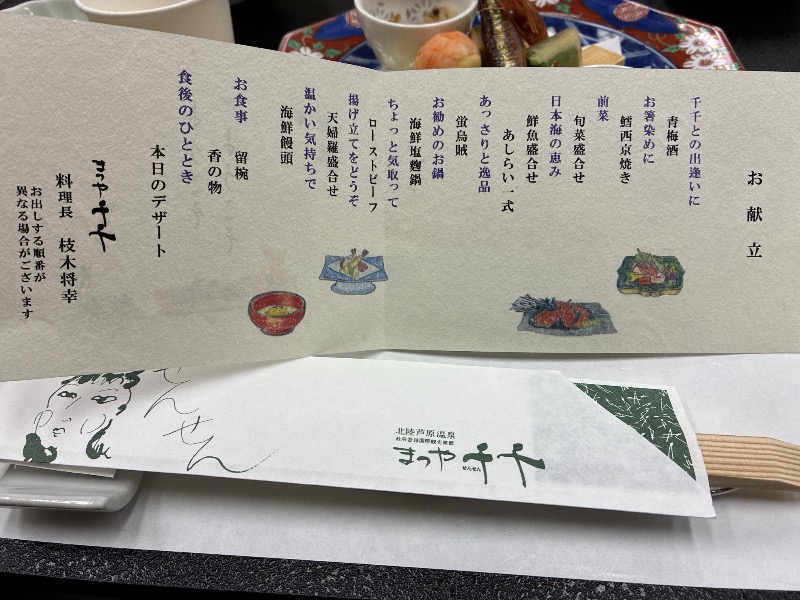 お献立
千千との出逢いに
青梅酒
お箸染めに
鱈西京焼き
前菜
旬菜盛合せ
日本海の恵み
鮮魚盛合せ
あしらい一式
あっさりと逸品
蛍烏賊
お勧めのお鍋
海鮮塩麹鍋
ちょっと気取って
ローストビーフ
揚げ立てをどうぞ
天婦羅盛合せ
温かい気持ちで
海鮮饅頭
お食事 留椀
香の物
食後のひととき
本日のデザート
まつや千千
料理長 枝木将幸
お出しする順番が
異なる場合がございます
せんせん
北陸芦原温泉
政府登録国際観光旅館
まつや千千
せんせん